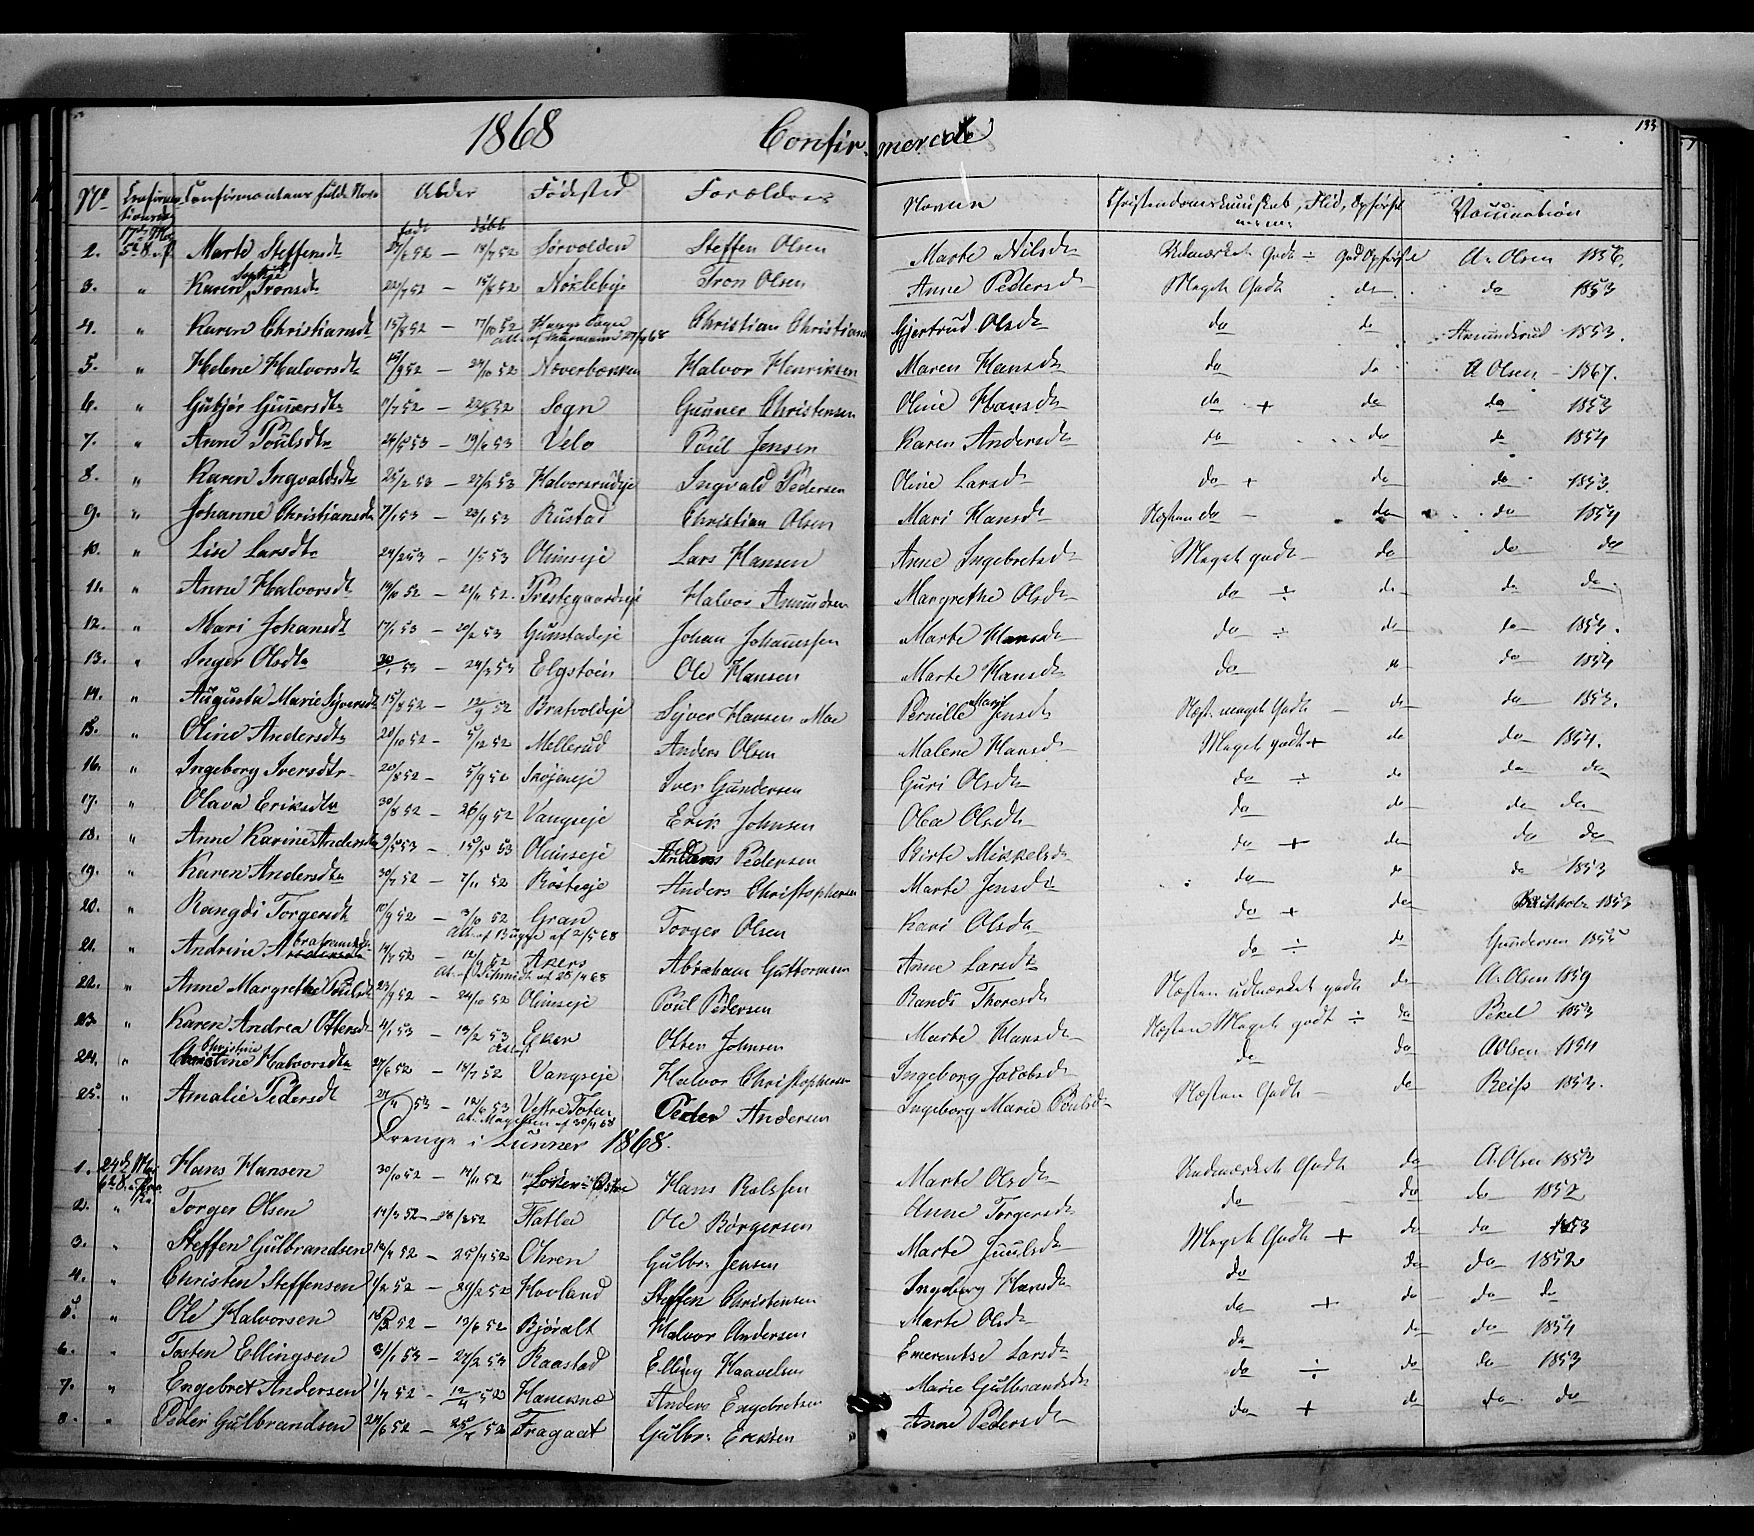 133
1868 Confirmerede
No Confirmationsd. Confirmandens fulde Navn Alder Fødested Forældres Navne Christendomskundskab, Flid, Opførsel Vaccination
født døbt
2. 17de Mai 5 S. e. P. Marte Steffensdt 27/6 52 – 18/7 52 Sørvolden Steffen Olsen Marte Nilsdt Udmærket Godt ÷ god Opførsel A. Olsen 1856.
3. " Karen Sophie Tronsdt 22/7 52 – 15/8 52 Nøklebye Tron Olsen Anne Pedersdt Meget Godt do do 1853
4. " Karen Christiansdt 15/8 52 – 17/10 52 Christian Christians Gjertrud Olsdt do do Amundsrud 1853.
5. " Helene Halvorsdt 12/9 52 – 24/10 52 Næverbækken Halvor Henriksen Maren Hansdt do do A Olsen – 1867.
6. " Gubjør Gunersdt 11/7 52 – 22/8 52 Sogn Gunner Christensen Oline Hansdt do + do do 1853
7. " Anne Poulsdtr 24/5 53 – 19/6 53 Velo Poul Jensen Karen Andersdt do do do 1854
8. " Karen Ingvaldsdt 25/2 53 – 27/3 53 Halvorsrudeje Ingvald Pedersen Oline Larsdt do + do do 1853.
9. " Johanne Christiansdt 7/1 53 – 23/1 53 Rustad Christian Olsen Mari Hansdt Næsten do – do do 1854
10. " Lise Larsdtr 24/2 53 – 1/5 53 Olimseje Lars Hansen Anne Ingebretsdt Meget godt – do do do
11. " Anne Halvorsdt 14/10 52 – 21/11 52. Prestegaardseje Halvor Amundsen Margrethe Olsdt do ÷ do do do
12. " Mari Johansdt 17/1 53 – 20/2 53 Gunstadeje Johan Johannessen Marte Hansdt do ÷ do do 1853.
13. " Inger Olsdtr 30/1 53 – 24/3 53 Elgstøen Ole Hansen Marte Hansdt do do do 1854
14. " Augusta Marie Syversdt 15/8 52 – 12/9 52 Bratvoldeje Syver Hansen Moe Pernille Marie Jensdt Næst. meget Godt – do do 1853.
15. " Oline Andersdtr 20/10 52 – 5/12 52 Mellerud Anders Olsen Malene Hansdt Meget godt + do do 1854.
16. " Ingeborg Iversdtr 20/8 52 – 5/9 52 Skøjeneje Iver Gundersen Guri Olsdt do ÷ do do do
17. " Olava Eriksdtr 30/8 52 – 26/9 52 Vangseje Erik Johnsen Olea Olsdt do do do do
18. " Anne Karine Andersdt 9/5 53 – 15/5 53 Olimseje Anders Pedersen Birte Mikkelsdt do + do do do
19. " Karen Andersdtr 30/7 52 – 7/11 52 Røsteeje Anders Christophersen Marte Jensdt do do do 1853
20. " Rangdi Torgersdt 10/9 52 – 3/10 52 Gran Torger Olsen Kari Olsdt do + do Buchholz 1853
Att. af Bugge af 2/5 68
21. " Andrine Abrahamsdt 14/7 52 – 12/9 52 Akers Abraham Guttormsen Anne Larsdt do ÷ do Gundersen 1855
At. Schmidt af 28/4 68
22. " Anne Margrethe Poulsdt 23/9 52 – 24/10 52 Olimseje Poul Pedersen Randi Thoresdt Næsten udmærket godt do A. Olsen 1859
23. " Karen Andrea Ottersdt 4/1 53 – 13/2 53 Eker Otter Johnsen Marte Hansdt Næsten Meget godt ÷ do Pekel 1853
24. " Christine Halvorsdtr 27/6 52 – 18/7 52 Vangseje Halvor Christophersen Ingeborg Jacobsdt do do A Olsen 1854
25. " Amalie Pedersdt 24/4 53 – 12/6 53 Vestre Toten Peder Andersen Ingeborg Marie Poulsdt Næsten Godt – do Reiss 1853.
Drenge i Lunner 1868.
1. 24de Mai Hans Hansen 30/10 52 – 14/11 52 Hans Rolfsen Marte Olsdt Udmærket Godt do A. Olsen 1853
2. " Torger Olsen 14/3 52 – 28/3 52 Flatla Ole Børgersen Anne Torgersdt do – do do 1852
3. " Steffen Gulbrandsen 12/4 52 – 25/4 52 Ohren Gulbr. Jensen Marte Juulsdt Meget Godt + do do 1853
4. " Christen Steffensen 1/2 52 – 29/2 52 Hovland Steffen Christensen Ingeborg Hansdt do do do 1852
5. " Ole Halvorsen 18/5 52 – 13/6 52 Bjøralt Halvor Andersen Marte Olsdt do + do do do
6. " Tosten Ellingsen 31/1 53 – 27/2 53 Raastad Elling Haavelsen Emerentse Larsdt do do do 1854
7. " Engebret Andersen 1/4 52 – 12/4 52 Haneknæ Anders Engebretsen Marie Gulbrandsdt do ÷ do do 1853
8. " Peder Gulbrandsen 24/6 52 – 25/7 52 Fragaat Gulbr. Eriksen Anne Pedersdt do + do do do